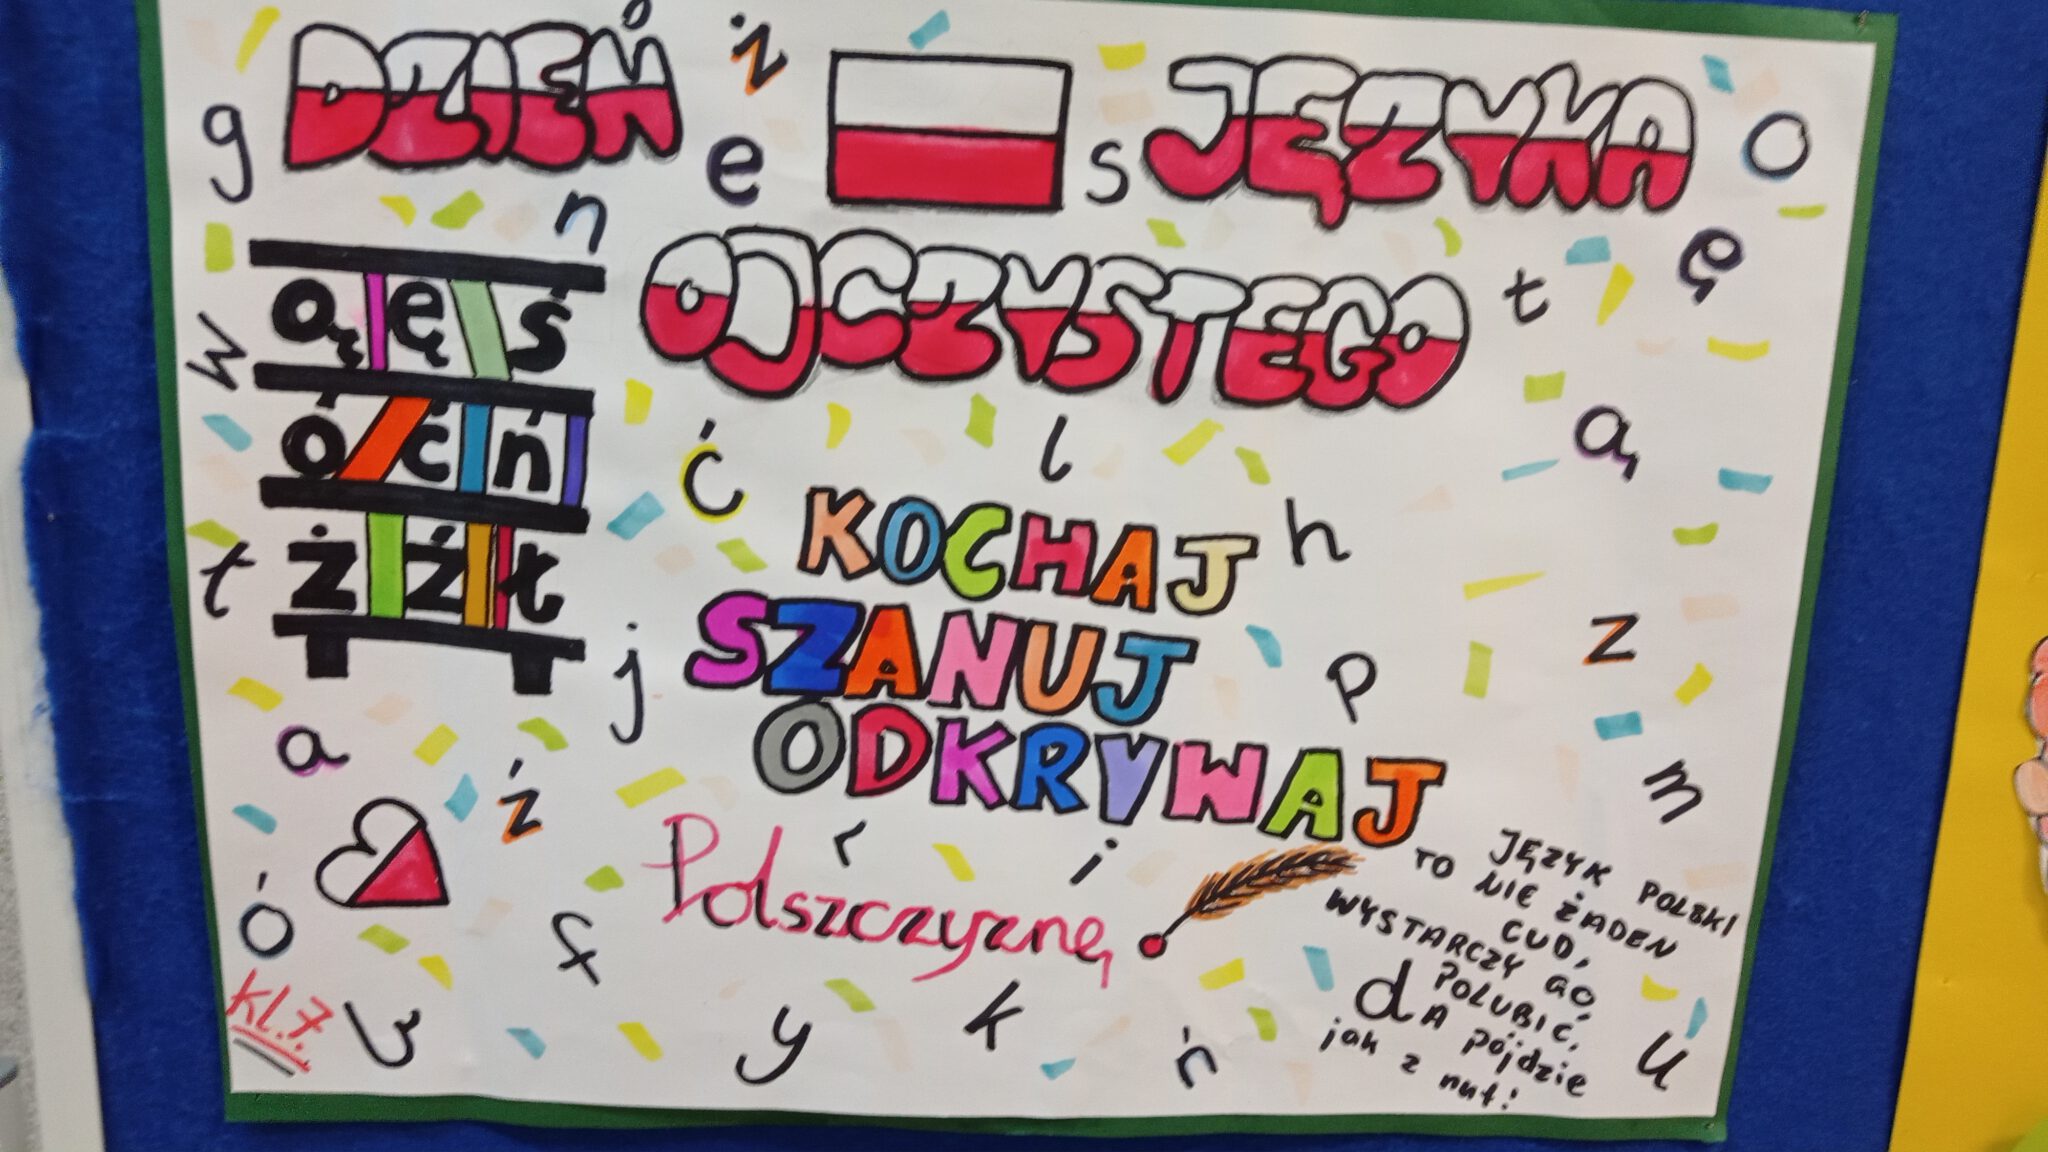 DZIEŃ JĘZYKA
OJCZYSTEGO
ą ę ś
ó ć ń
ż ź ł
KOCHAJ
SZANUJ
ODKRYWAJ
Polszczyznę
JĘZYK POLSKI
TO NIE ŻADEN
CUD,
WYSTARCZY GO
POLUBIĆ,
A pójdzie
jak z nut!
Kl. 7.
g
ż
e
s
o
n
ę
t
w
ą
ć
l
h
t
z
j
p
a
ź
m
r
i
ó
f
d
b
y
k
ń
u